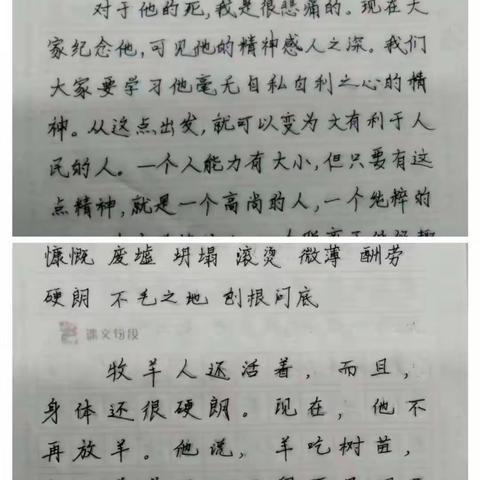 对于他的死，我是很悲痛的。现在大
家纪念他，可见他的精神感人之深。我们
大家要学习他毫无自私自利之心的精
神。从这点出发，就可以变为大有利于人
民的人。一个人能力有大小，但只要有这
点精神，就是一个高尚的人，一个纯粹的
慷慨 废墟 坍塌 滚烫 微薄 酬劳
硬朗 不毛之地 刨根问底
课文句段
牧羊人还活着，而且，
身体还很硬朗。现在，他不
再放羊。他说，羊吃树苗，